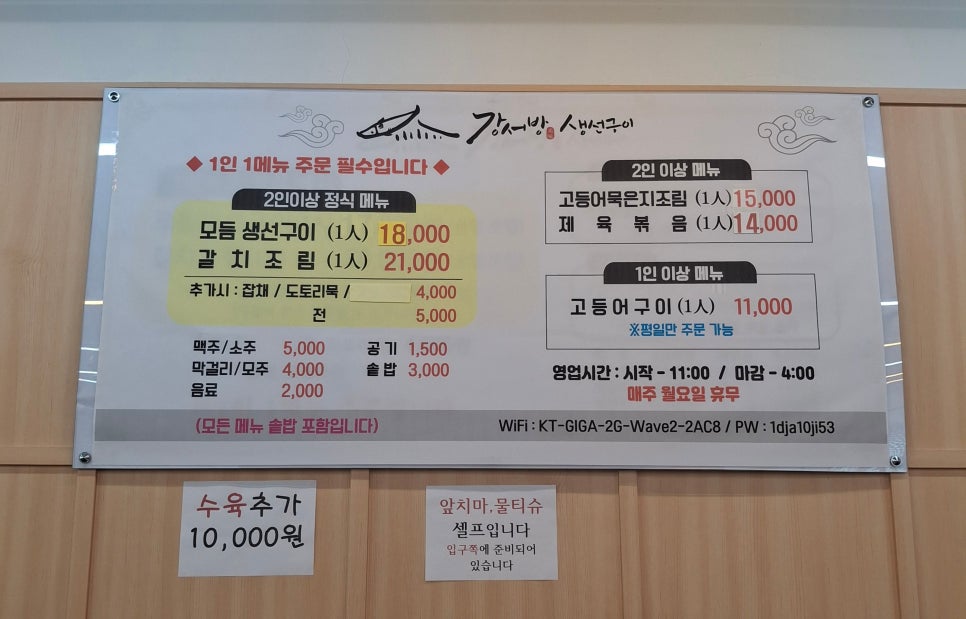 강서방 생선구이
◆ 1인 1메뉴 주문 필수입니다 ◆
2인이상 정식 메뉴
모듬 생선구이 (1人) 18,000
갈치조림 (1人) 21,000
추가시 : 잡채 / 도토리묵 / 4,000
전 5,000
맥주/소주 5,000 공기 1,500
막걸리/모주 4,000 솥밥 3,000
음료 2,000
(모든 메뉴 솥밥 포함입니다)
2인 이상 메뉴
고등어묵은지조림 (1人) 15,000
제육볶음 (1人) 14,000
1인 이상 메뉴
고등어구이 (1人) 11,000
※평일만 주문 가능
영업시간 : 시작 - 11:00 / 마감 - 4:00
매주 월요일 휴무
WiFi : KT-GIGA-2G-Wave2-2AC8 / PW : 1dja10ji53
수육추가
10,000원
앞치마,물티슈
셀프입니다
입구쪽에 준비되어
있습니다